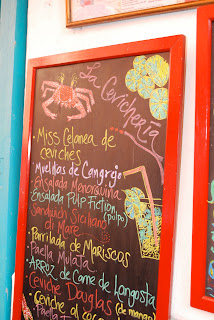 La Cevichería
Miss Celanea de
ceviches
Muelitas de Cangrejo
Ensalada Menorquina
Ensalada Pulp Fiction
(pulpo)
Sandwich Siciliano
di Mare
Parrilada de Mariscos
Paella Mulata
Arroz de Carne de Langosta
Ceviche Douglas (de mango)
Ceviche al coco
Paella